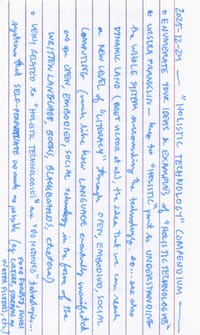 2025-12-29 — "HOLISTIC TECHNOLOGY" COMPENDIUM —
○ ENUMERATE YOUR IDEAS & EXAMPLES OF "HOLISTIC TECHNOLOGIES"
○ URSULA FRANKLIN — key to "HOLISTIC" part is UNDERSTANDING
the WHOLE SYSTEM surrounding the technology. see also
DYNAMIC LAND (BRET VICTOR et al), the idea that we can reach
a NEW LEVEL of "LITERACY" through OPEN, EMBODIED, SOCIAL
COMPUTING (much like how LANGUAGE eventually
as an OPEN, EMBODIED, SOCIAL technology in the form of the
WRITTEN LANGUAGE BOOKS, BLACKBOARDS, etcetera)
○ VERY RELATED to "HOLISTIC TECHNOLOGIES" are "DO NOTHING" technologies —
systems that SELF-PERPETUATE as much as possible (e.g.
FOOD FORESTS,
WATER FILTERS, etc)